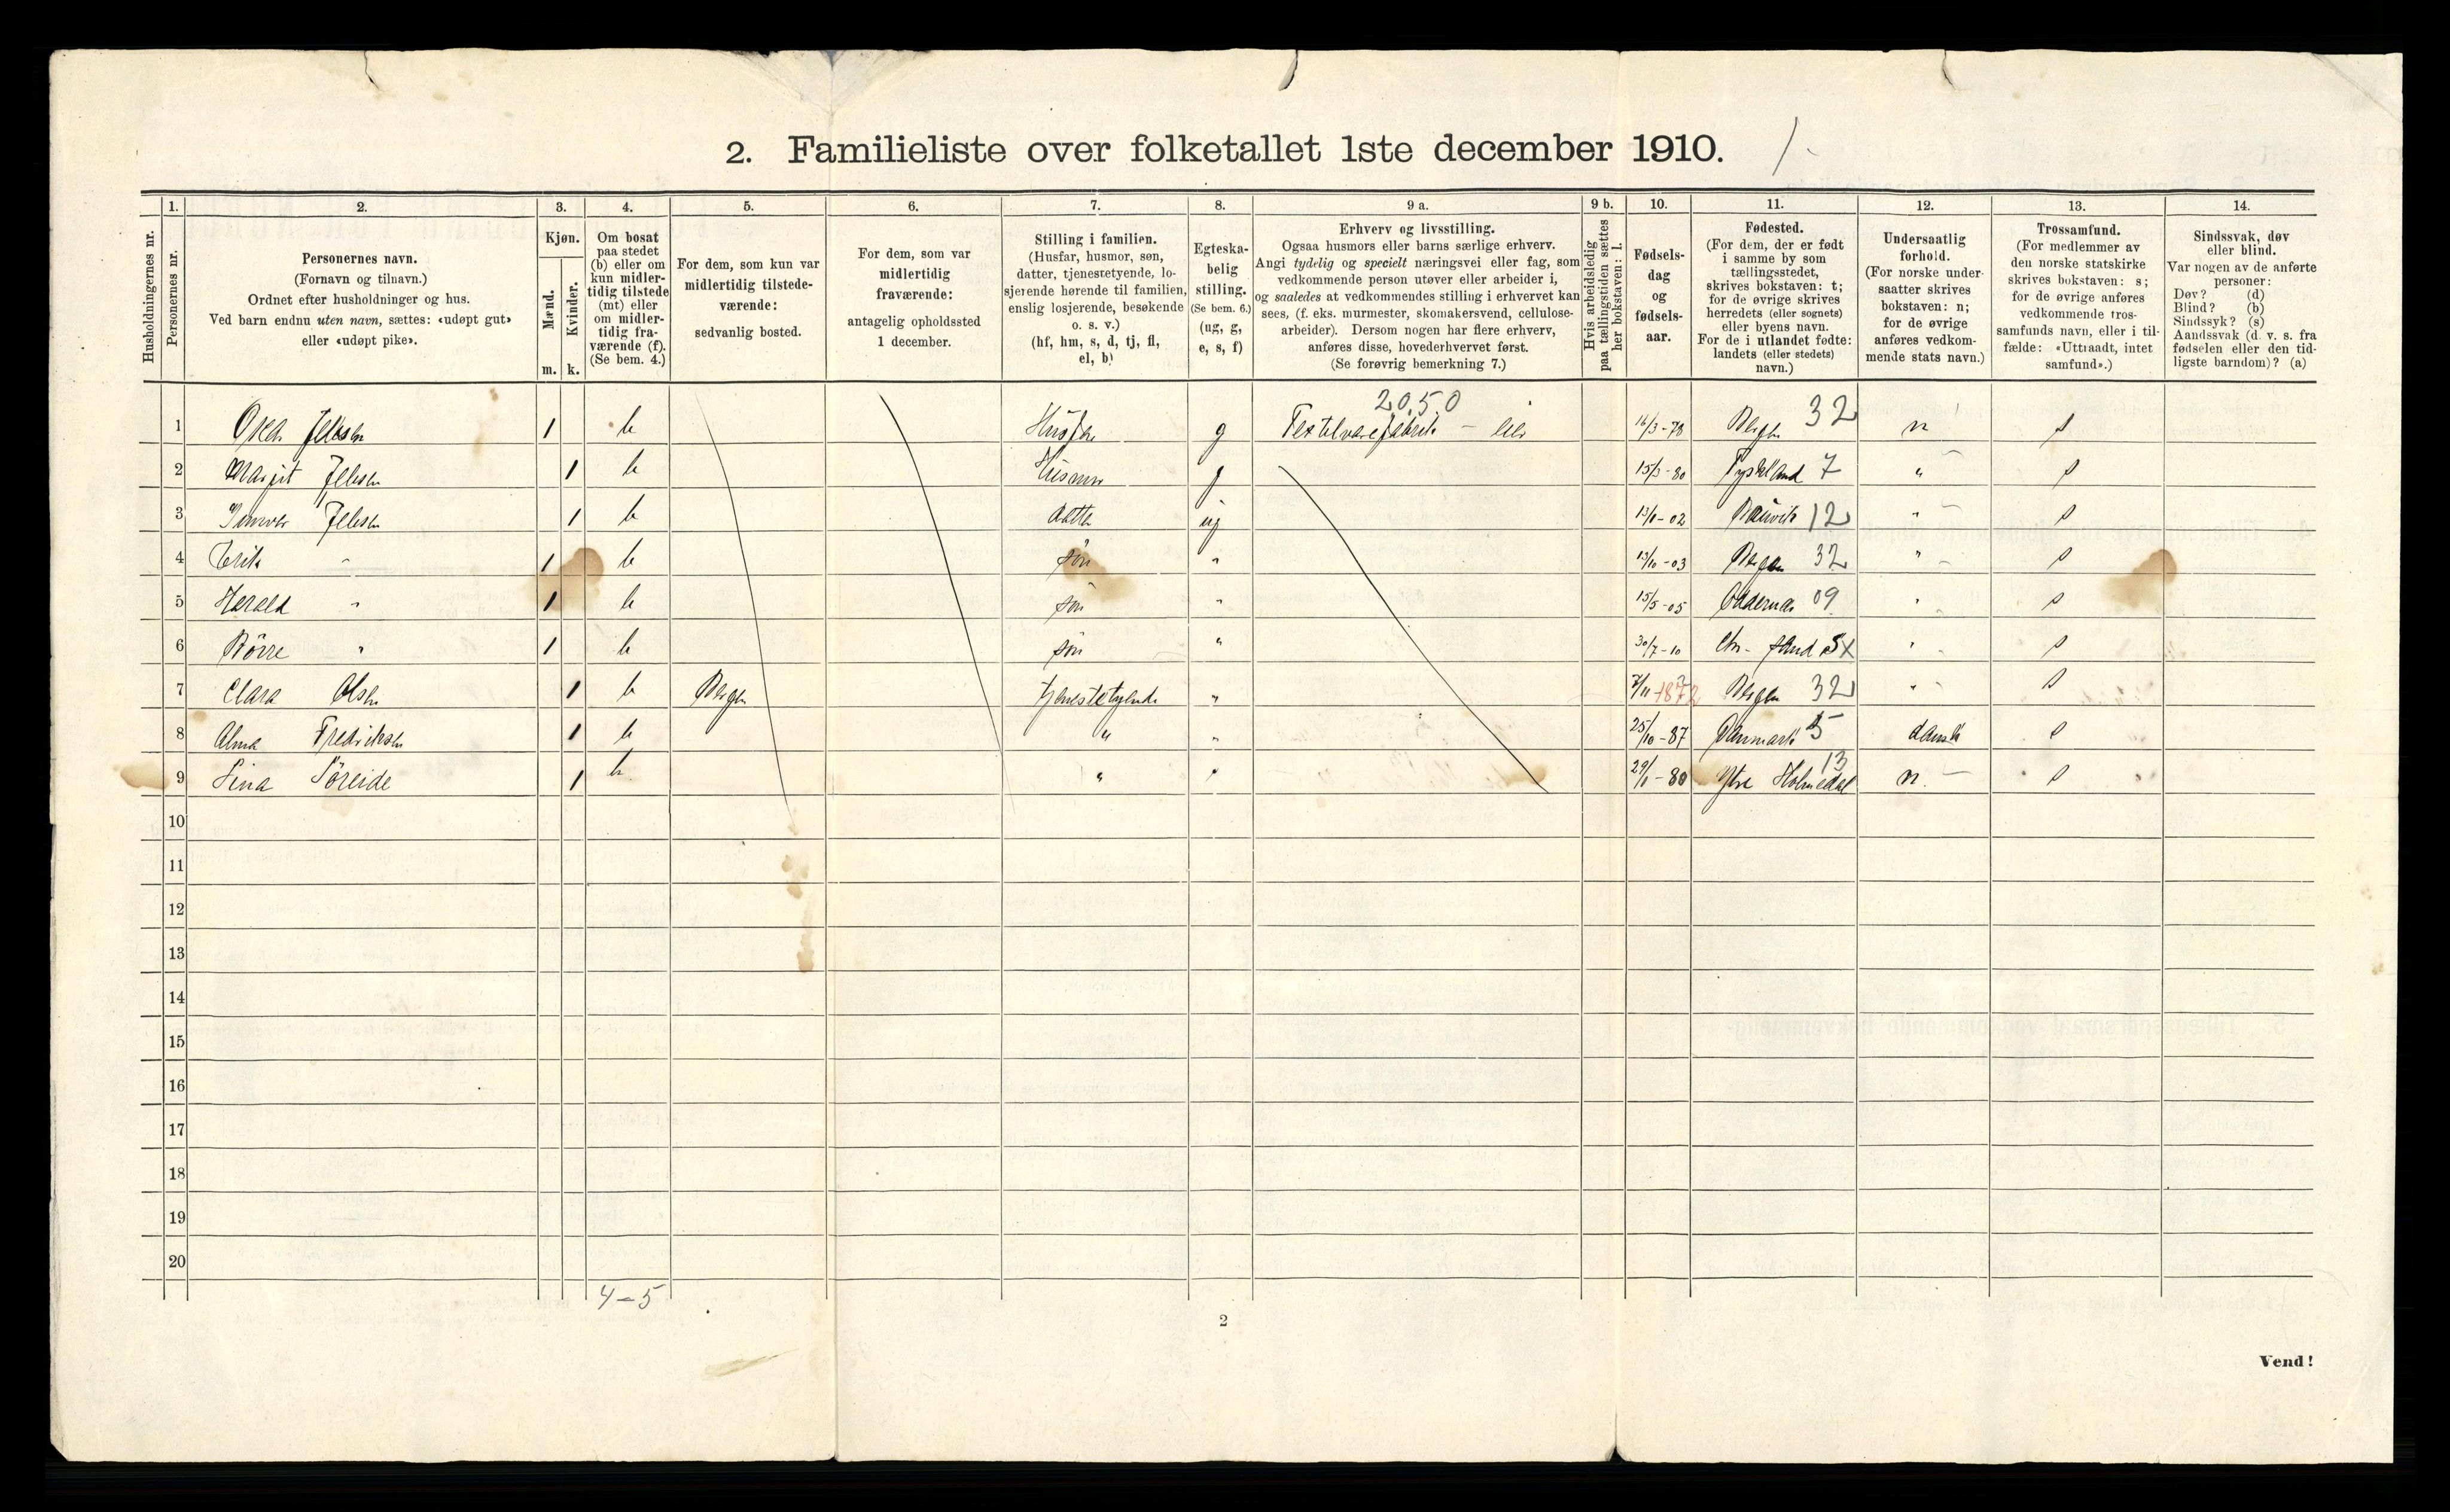 2. Familieliste over folketallet 1ste december 1910.
Husholdningernes nr.
1.
Personernes nr.
2.
Personernes navn.
(Fornavn og tilnavn.)
Ordnet efter husholdninger og hus.
Ved barn endnu uten navn, sættes: «udøpt gut»
eller «udøpt pike».
3.
Kjøn.
Mænd.
Kvinder.
m. k.
4.
Om bosat
paa stedet
(b) eller om
kun midler-
tidig tilstede
(mt) eller
om midler-
tidig fra-
værende (f).
(Se bem. 4.)
5.
For dem, som kun var
midlertidig tilstede-
værende:
sedvanlig bosted.
6.
For dem, som var
midlertidig
fraværende:
antagelig opholdssted
1 december.
7.
Stilling i familien.
(Husfar, husmor, søn,
datter, tjenestetyende, lo-
sjerende hørende til familien,
enslig losjerende, besøkende
o. s. v.)
(hf, hm, s, d, tj, fl,
el, b)
8.
Egteska-
belig
stilling.
(Se bem. 6.)
(ug, g,
e, s, f)
9 a.
Erhverv og livsstilling.
Ogsaa husmors eller barns særlige erhverv.
Angi tydelig og specielt næringsvei eller fag, som
vedkommende person utøver eller arbeider i,
og saaledes at vedkommendes stilling i erhvervet kan
sees, (f. eks. murmester, skomakersvend, cellulose-
arbeider). Dersom nogen har flere erhverv,
anføres disse, hovederhvervet først.
(Se forøvrig bemerkning 7.)
9 b.
Hvis arbeidsledig
paa tællingstiden sættes
her bokstaven: l.
10.
Fødsels-
dag
og
fødsels-
aar.
11.
Fødested.
(For dem, der er født
i samme by som
tællingsstedet,
skrives bokstaven: t;
for de øvrige skrives
herredets (eller sognets)
eller byens navn.
For de i utlandet fødte:
landets (eller stedets)
navn.)
12.
Undersaatlig
forhold.
(For norske under-
saatter skrives
bokstaven: n;
for de øvrige
anføres vedkom-
mende stats navn.)
13.
Trossamfund.
(For medlemmer av
den norske statskirke
skrives bokstaven: s;
for de øvrige anføres
vedkommende tros-
samfunds navn, eller i til-
fælde: «Uttraadt, intet
samfund».)
14.
Sindssvak, døv
eller blind.
Var nogen av de anførte
personer:
Døv? (d)
Blind? (b)
Sindssyk? (s)
Aandssvak (d. v. s. fra
fødselen eller den tid-
ligste barndom)? (a)
20.5.0
1 1 b Husfar g 16/3-78 Bergen 32 n s
2 Margit Jebsen 1 b Husmor g 15/3-80 Tyskland 7 " s
3 Jebsen 1 b datter ug 02 12 " s
4 Erik " 1 b søn " 13/10-03 Bergen 32 " s
5 Harald " 1 b søn " 15/5-05 09 " s
6 Börre " 1 b søn " 30/7-10 Chr. sand " s
7 Clara Olsen 1 b Bergen tjenestetyende " 7/11 1872 Bergen 32 " s
8 Alma Fredriksen 1 b " " 25/10-87 Danmark 5 dansk s
9 Lina Söreide 1 b " " 29/1-80 Ytre Holmedal 13 n s
10
11
12
13
14
15
16
17
18
19
20
4-5
2
Vend!